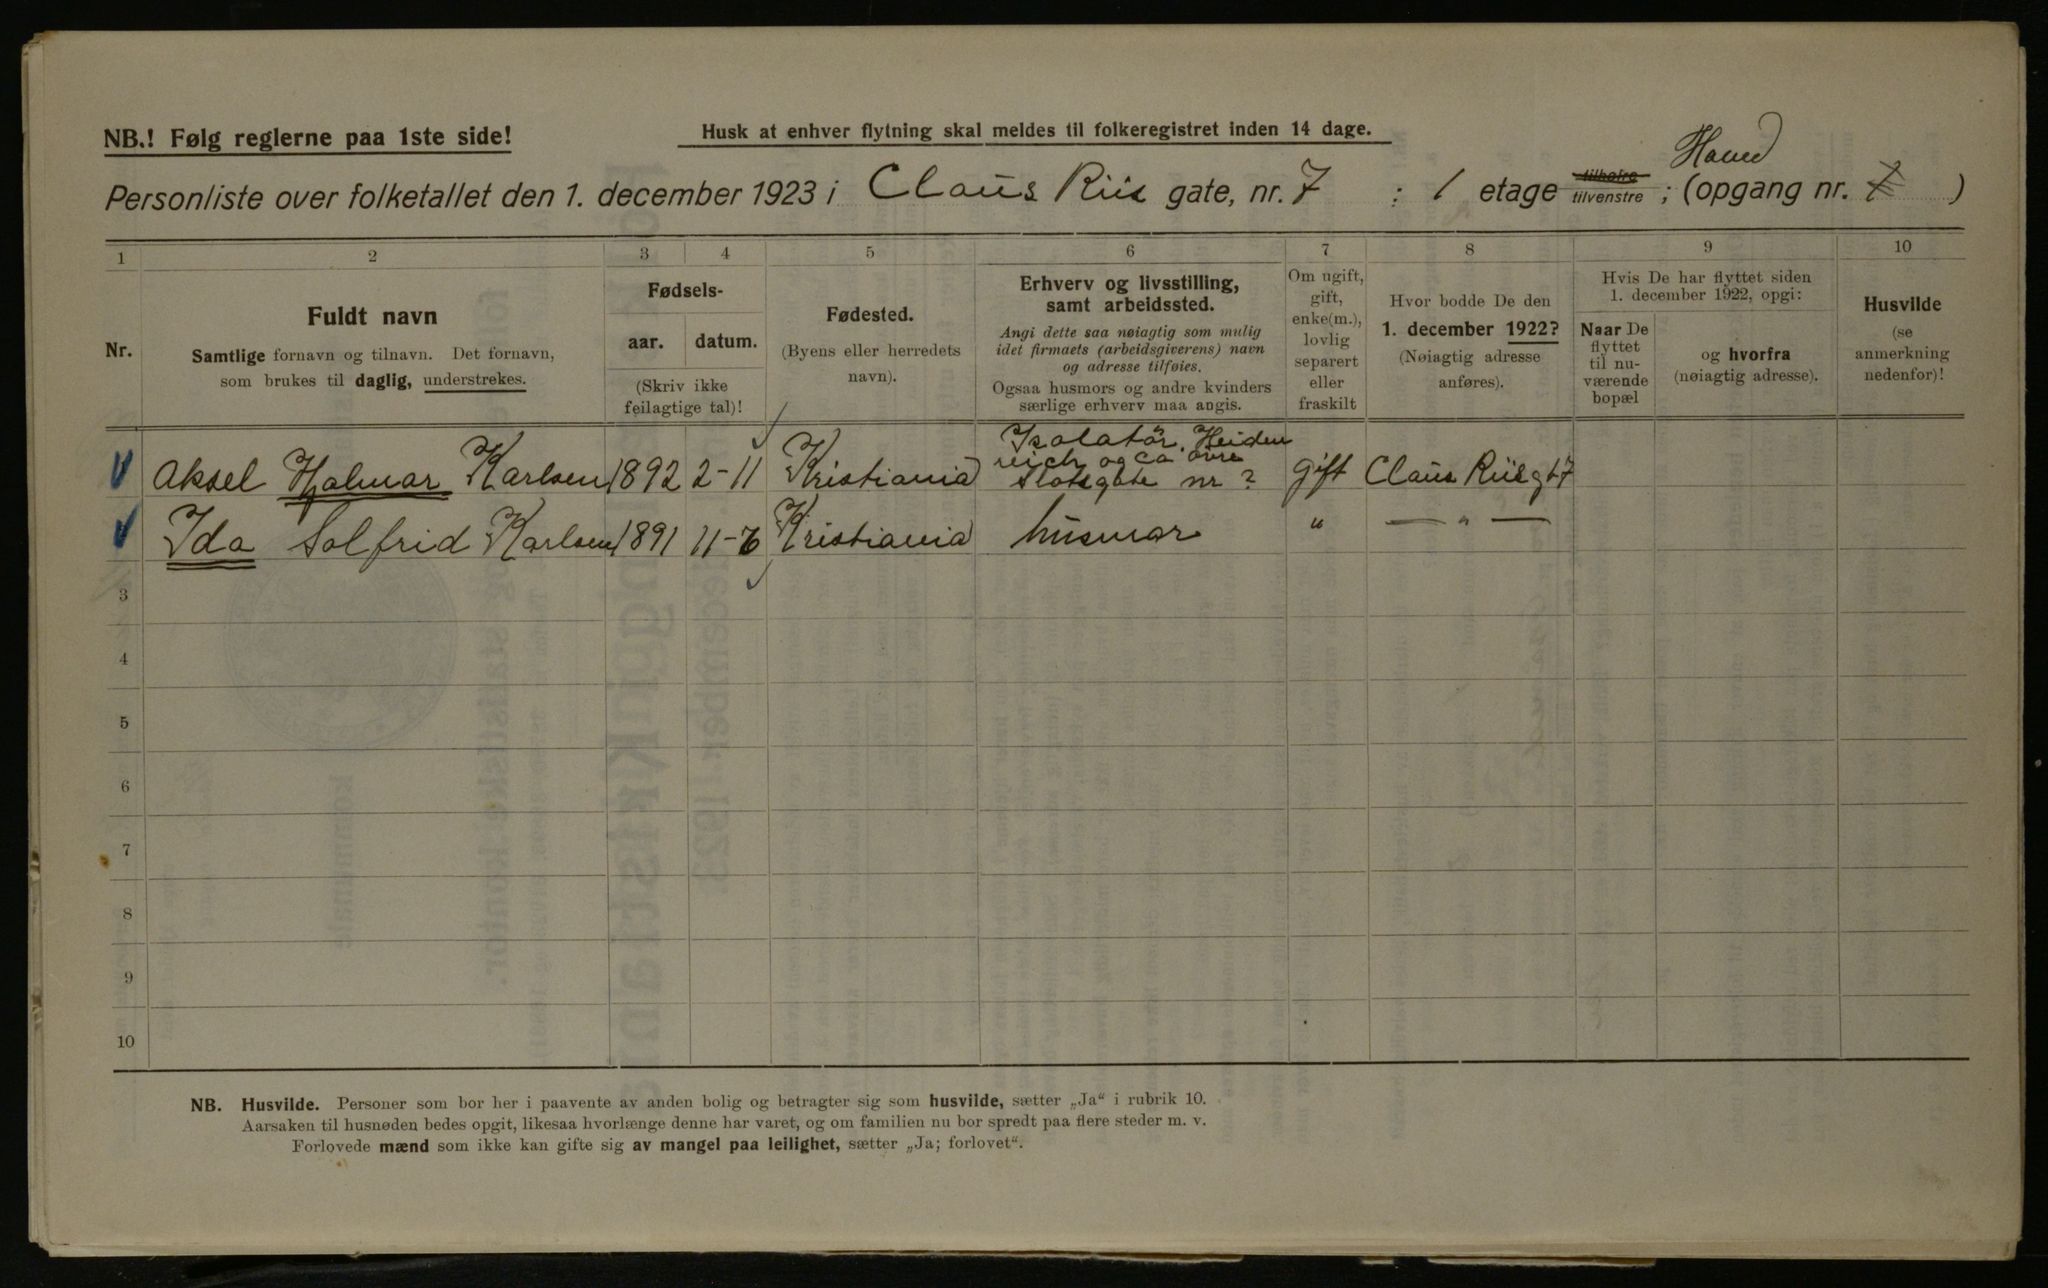 NB.! Følg reglerne paa 1ste side!
Husk at enhver flytning skal meldes til folkeregistret inden 14 dage.
Personliste over folketallet den 1. december 1923 i Claus Riis gate, nr. 7 : 1 etage tilhøire tilvenstre ; (opgang nr. )
1 2 3 4 5 6 7 8 9 10
Nr.
Fuldt navn
Samtlige fornavn og tilnavn. Det fornavn,
som brukes til daglig, understrekes.
Fødsels-
aar. datum.
(Skriv ikke
feilagtige tal)!
Fødested.
(Byens eller herredets
navn).
Erhverv og livsstilling,
samt arbeidssted.
Angi dette saa nøiagtig som mulig
idet firmaets (arbeidsgiverens) navn
og adresse tilføies.
Ogsaa husmors og andre kvinders
særlige erhverv maa angis.
Om ugift,
gift,
enke(m.),
lovlig
separert
eller
fraskilt
Hvor bodde De den
1. december 1922?
(Nøiagtig adresse
anføres).
Hvis De har flyttet siden
1. december 1922, opgi:
Naar De
flyttet
til nu-
værende
bopæl
og hvorfra
(nøiagtig adresse).
Husvilde
(se
anmerkning
nedenfor)!
Aksel Hjalmar Karlsen 1892 2-11 Kristiania Isolatör, Heiden
reich og Co övre
Slotsgate nr ? gift Claus Riisgt 7
Ida Solfrid Karlsen 1891 11-6 Kristiania husmor " — " —
3
4
5
6
7
8
9
10
NB. Husvilde. Personer som bor her i paavente av anden bolig og betragter sig som husvilde, sætter „Ja“ i rubrik 10.
Aarsaken til husnøden bedes opgit, likesaa hvorlænge denne har varet, og om familien nu bor spredt paa flere steder m. v.
Forlovede mænd som ikke kan gifte sig av mangel paa leilighet, sætter „Ja; forlovet“.